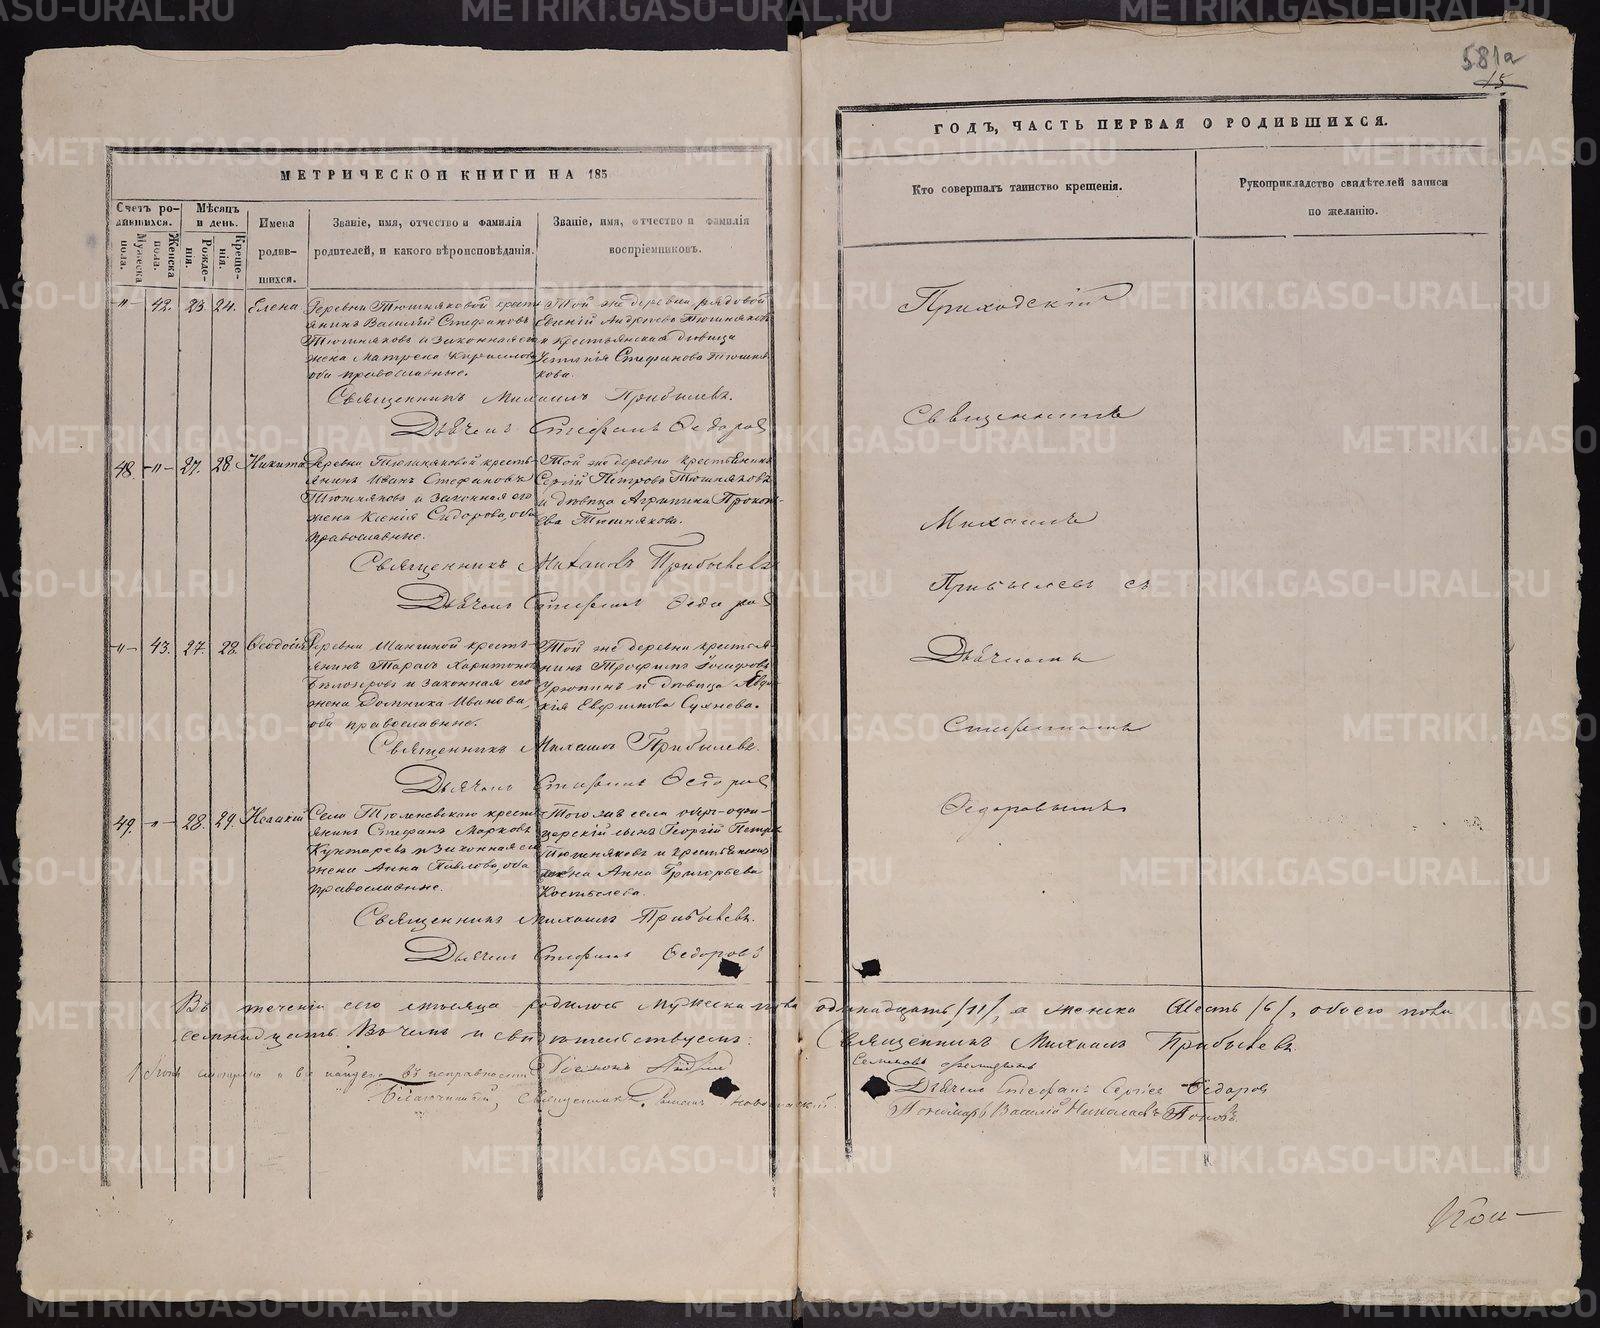 581а
15
МЕТРИЧЕСКОЙ КНИГИ НА 185
ГОДЪ, ЧАСТЬ ПЕРВАЯ О РОДИВШИХСЯ.
Счетъ ро-
дившихся.
Мужеска
пола.
Женска
пола.
Мѣсяцъ
и день.
Рожде-
нія.
Креще-
нія.
Имена
родив-
шихся.
Званіе, имя, отчество и фамилія
родителей, и какого вѣроисповѣданія.
Званіе, имя, отчество и фамилія
воспріемниковъ.
Кто совершалъ таинство крещенія.
Рукоприкладство свидѣтелей записи
по желанію.
-"- 42. 23. 24. Елена
Деревни Тюшняковой кресть
янинъ Василій Стефановъ
Тюшняковъ и законная его
жена Матрена Кирилова
оба православные.
Той же деревни рядовой
Евгеній Андреевъ Тюшняковъ
и крестьянская дѣвица
Стефанова Тюшня
кова.
Священникъ Михаилъ Прибылевъ.
Дьячекъ Стефанъ Федоровъ
48. -"- 27. 28. Никита
Деревни Тюшняковой кресть-
янинъ Иванъ Стефановъ
Тюшняковъ и законная его
жена Ксенія Сидорова, оба
православные.
Той же деревни крестьянинъ
Сергій Петровъ Тюшняковъ
и дѣвица Агрипина Прокоп-
ева Тюшнякова.
Священникъ Михаилъ Прибылевъ
Дьячекъ Стефанъ Федоровъ
-"- 43. 27. 28. Феодосія
Деревни Шангиной кресть-
янинъ Тарасъ Харитоновъ
Бѣлозеровъ и законная его
жена Домника Иванова,
оба православные.
Той же деревни крестья
нинъ Трофимъ Іосифовъ
Урюпинъ и дѣвица Авдо
кія Евфимова Сухнева.
Священникъ Михаилъ Прибылевъ.
Дьячекъ Стефанъ Федоровъ
49. -"- 28. 29.
Села Тюленевскаго кресть
янинъ Стефанъ Марковъ
и законная его
жена Анна Павлова, оба
православные.
Того же села оберъ-офи-
церскій сынъ Георгій Петровъ
Тюшняковъ и крестьянская
жена Анна Григорьева
Костылева.
Священникъ Михаилъ Прибылевъ.
Дьячекъ Стефанъ Федоровъ
Приходскій
Священникъ
Михаилъ
Прибылевъ съ
Дьячкомъ
Стефаномъ
Федоровымъ
Въ теченіи сего мѣсяца родилось мужеска пола одинадцать /11/, а женска Шесть /6/, обоего пола
семнадцать. Въ чемъ и свидѣтельствуемъ: Священникъ Михаилъ Прибылевъ.
найдено въ исправности
Дьячекъ Стефанъ Сергіевъ Федоровъ
Благочинный, священникъ
Пономарь Василій Николаевъ Поповъ.
METRIKI.GASO-URAL.RU